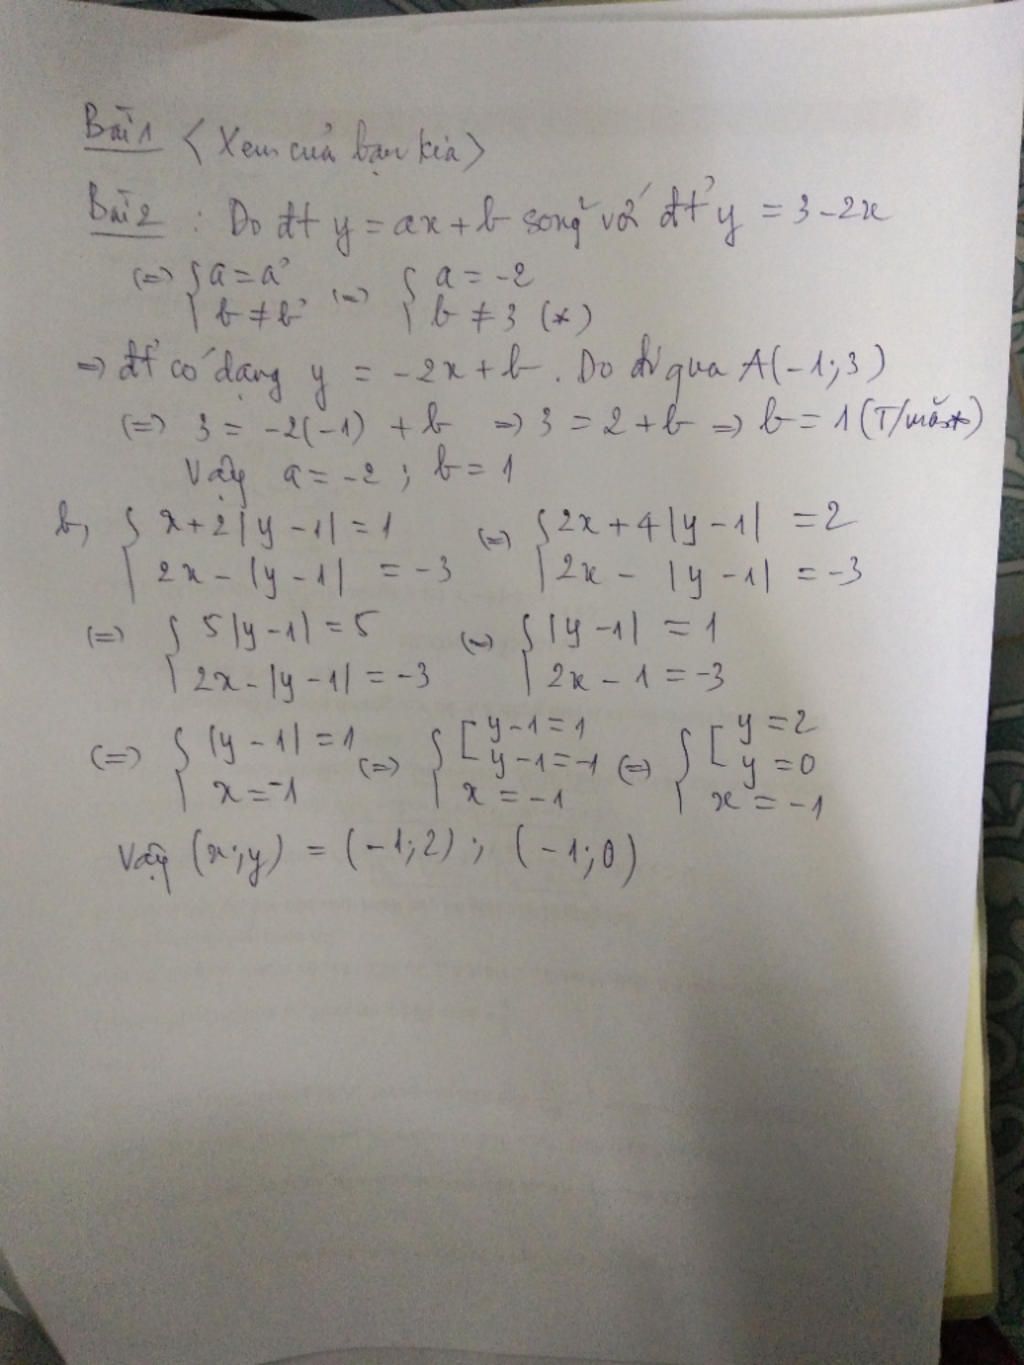 Bài 1 <Xem của bạn kia>
Bài 2 : Do đt y = ax + b song² với đt² y = 3 - 2x
(=) { a = a' b ≠ b' (=) { a = -2 b ≠ 3 (*)
=> đt² có dạng y = -2x + b. Do đi qua A(-1;3)
(=) 3 = -2(-1) + b => 3 = 2 + b => b = 1 (T/mãn*)
Vậy a = -2 ; b = 1
b, { x + 2|y - 1| = 1 2x - |y - 1| = -3 (=) { 2x + 4|y - 1| = 2 2x - |y - 1| = -3
(=) { 5|y - 1| = 5 2x - |y - 1| = -3 (=) { |y - 1| = 1 2x - 1 = -3
(=) { |y - 1| = 1 x = -1 (=) { [ y - 1 = 1 y - 1 = -1 x = -1 (=) { [ y = 2 y = 0 x = -1
Vậy (x;y) = (-1;2) ; (-1;0)